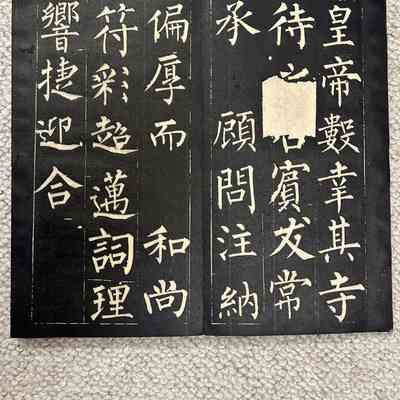 皇帝數幸其寺
待賓友常
承 顧問注納
偏厚而 和尚
符彩超邁詞理
響捷迎合